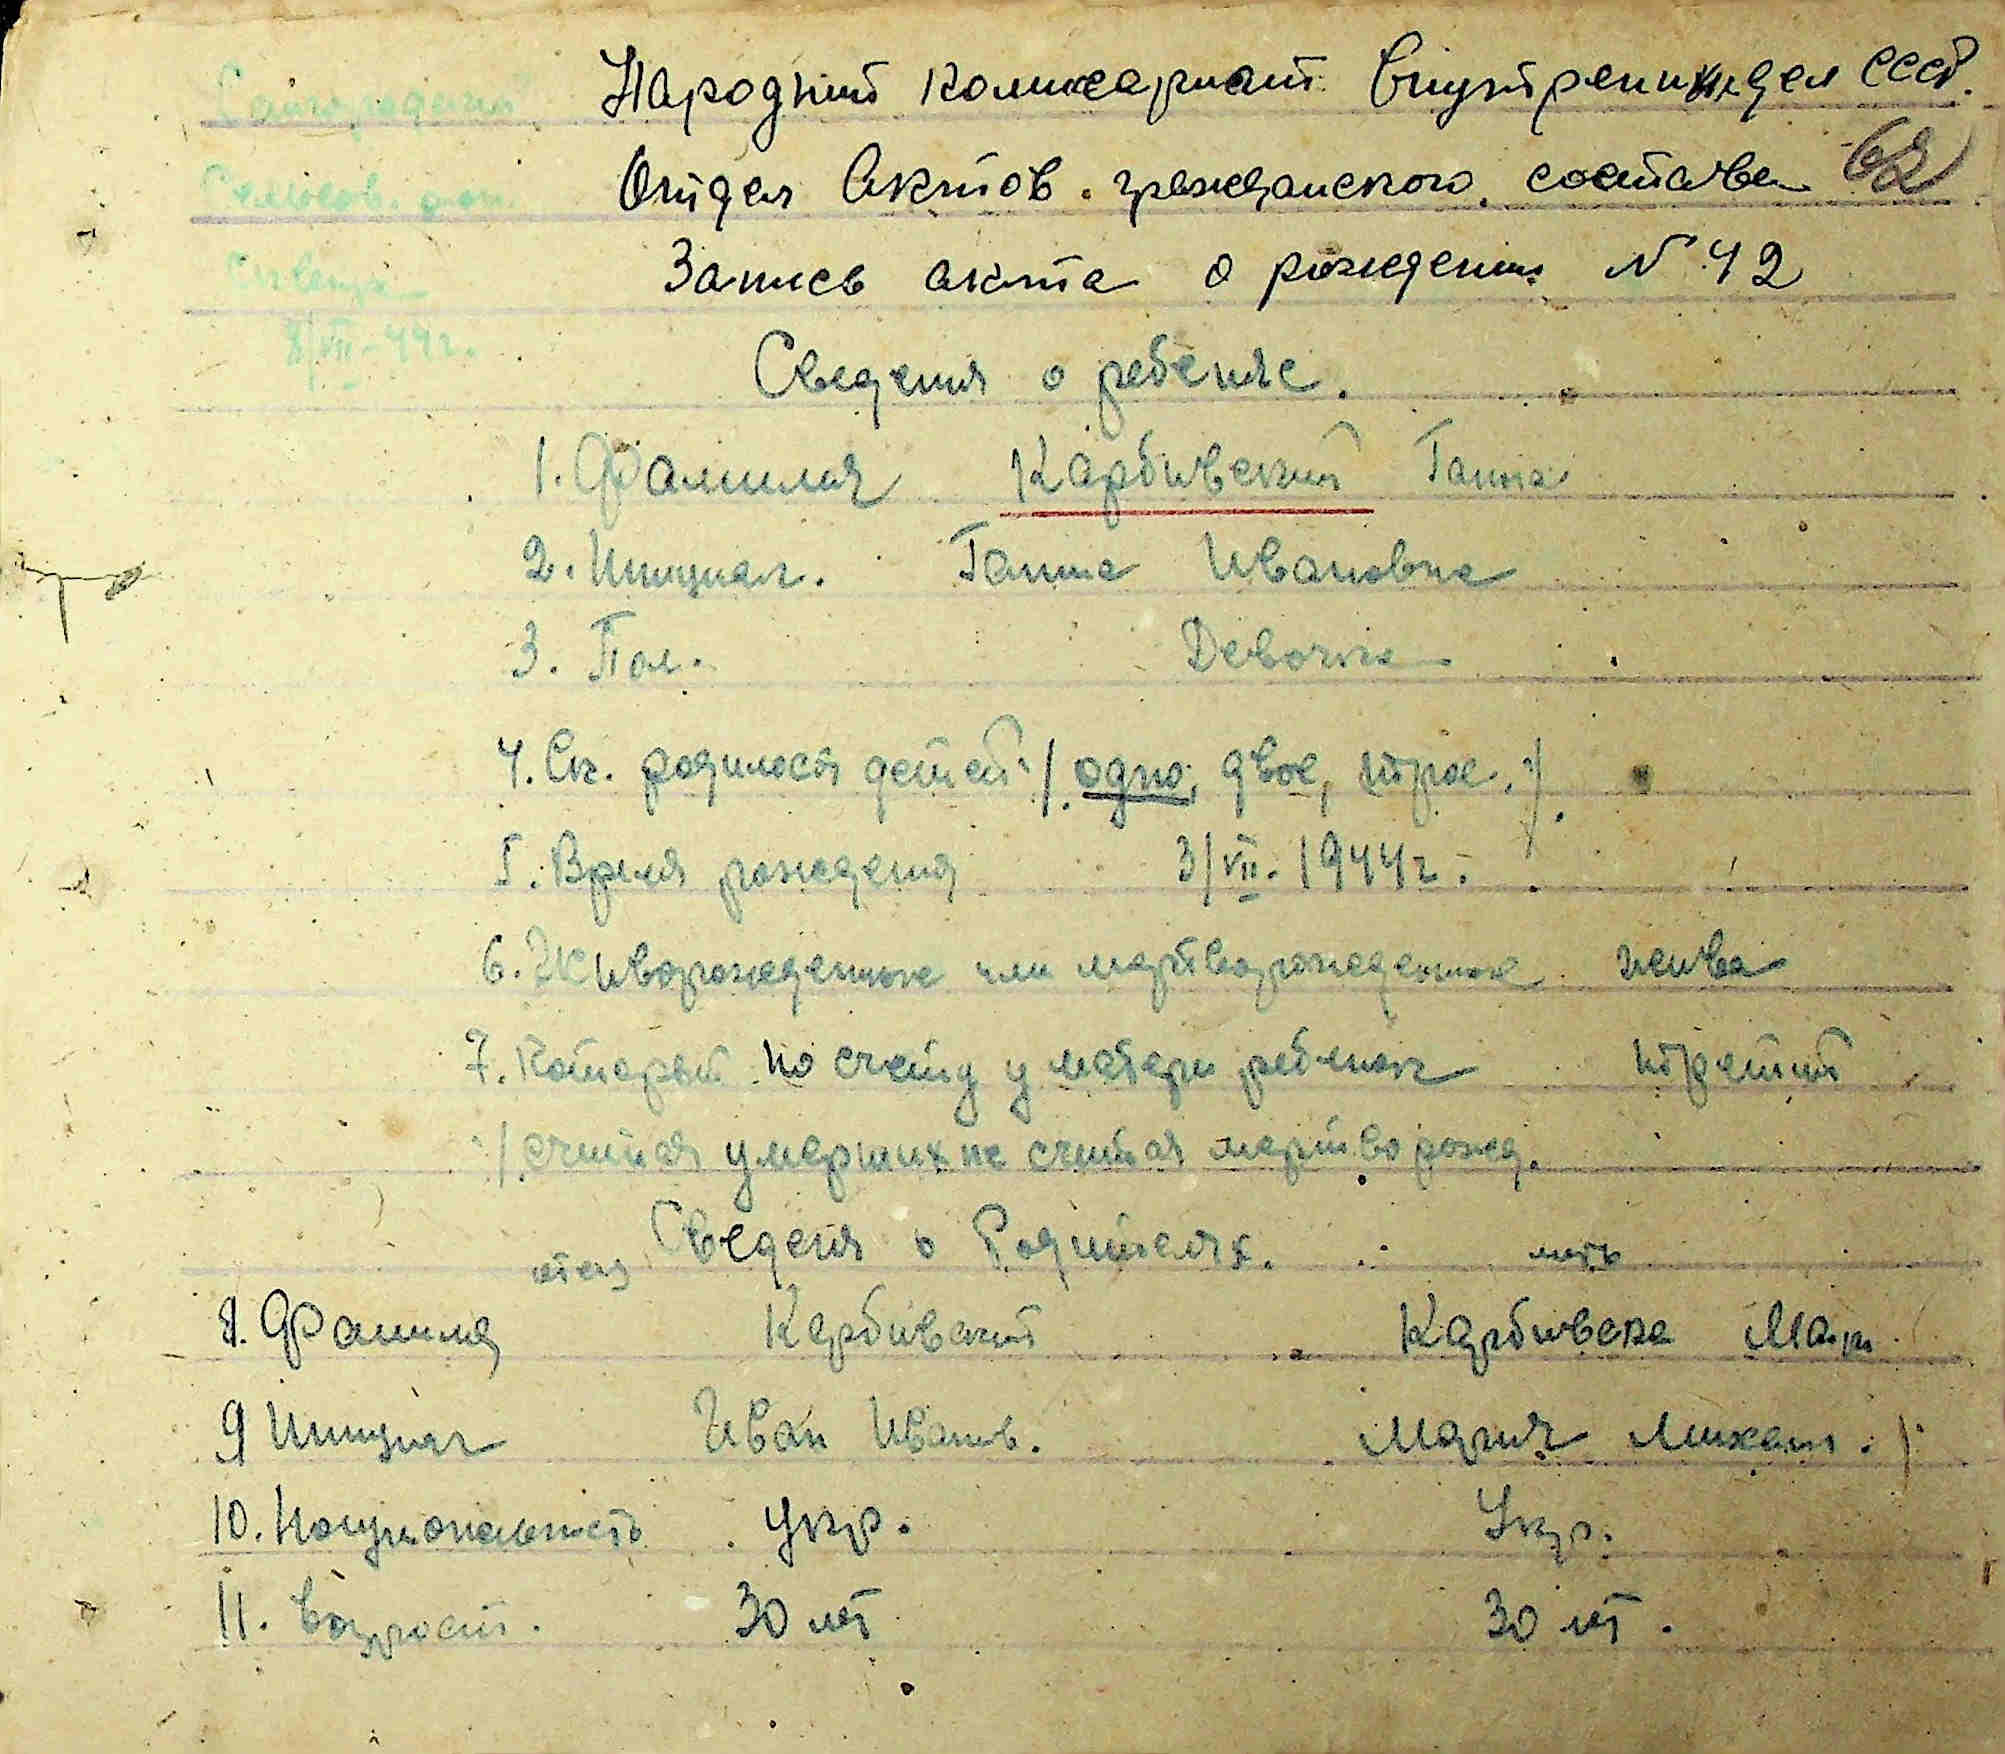 Народний комисариат внутрених дел СССР.
Отдел Актов гражданского состава 62
Запись акта о рождении N 42
8/VII-44г.
Сведения о ребенке.
1. Фамилия Карбивский Ганна
2. Инициал. Ганна Ивановна
3. Пол. Девочка
4. Ск. родилося детей /. одно, двое, трое. /.
5. Время рождения 3/VII. 1944г.
6. Живорожденное или мертворожденное жива
7. Который по счету у матери ребенок третий
/ считая умерших не считая мертворожд.
Сведеня о Родителях.
отец мать
8. Фамилия Карбивский Карбивска Мари
9 Инициал Иван Иванов. Мария Михайл.
10. Национальность Укр. Укр.
11. Возраст. 30 лет 30 лет.